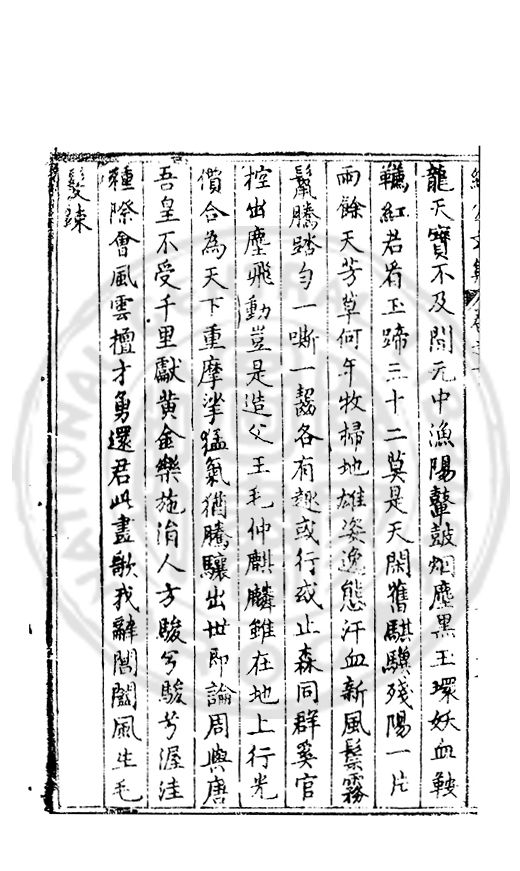 龍天寶不及開元中漁陽鼙鼓烟塵黑玉環妖血鞍
韉紅君看玉蹄三十二莫是天閑舊騏驥殘陽一片
雨餘天芳草何年牧掃地雄姿逸態汗血新風鬃霧
鬣騰踏勻一嘶一齧各有趣或行或止森同群奚官
控出塵飛動豈是造父王毛仲麒麟雖在地上行光
價合為天下重摩挲猛氣猶騰驤出世即論周與唐
吾皇不受千里獻黃金樂施涓人方駿兮駿兮渥洼
種際會風雲擅才勇還君此畫歌我辭閶闔風生毛
髮竦